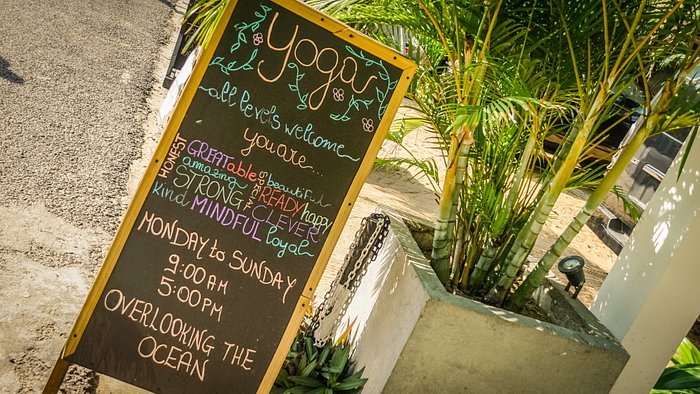 Yoga
all levels welcome
you are...
HONEST GREAT able & beautiful
amazing STRONG READY happy
kind MINDFUL CLEVER
loyal
MONDAY to SUNDAY
9:00AM
5:00PM
OVERLOOKING THE
OCEAN